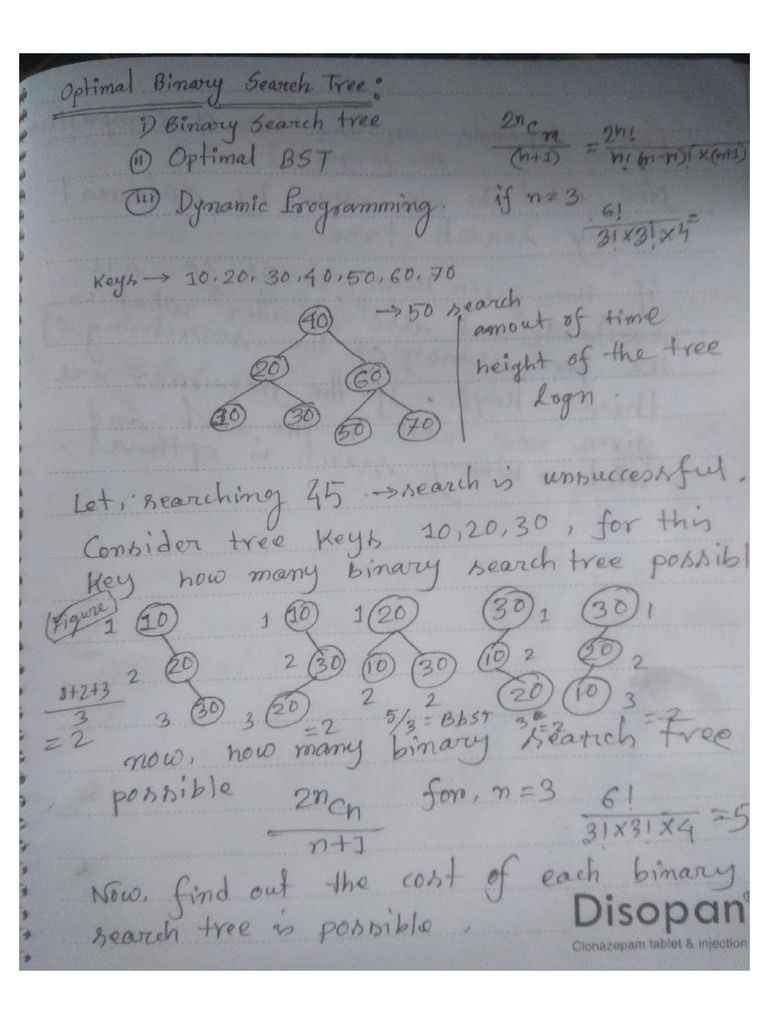 Optimal Binary Search Tree:
i) Binary Search tree
ii) Optimal BST
iii) Dynamic Programming.
2nCn / (n+1) = 2n! / n!(n-n)! x(n+1)
if n = 3 6! / 3! x 3! x 4 =
Keys → 10, 20, 30, 40, 50, 60, 70
40 → 50 search
20 60
10 30 50 70
amout of time
height of the tree
logn
Let, searching 45 → search is unsuccessful.
Consider tree keys 10, 20, 30, for this
key how many binary search tree possibl
Figure
1 10 1 10 1 20 30 1 30 1
2 20 2 30 10 30 10 2 20 2
3 30 3 20 2 2 20 10 3
1+2+3 / 3 = 2
= 2
5/3 = BbST
3 = 2
= 2
now, how many binary search tree
possible 2nCn / n+1 for, n = 3 6! / 3! x 3! x 4 = 5
Now, find out the cost of each binary
search tree is possible.
Disopan
Clonazepam tablet & injection